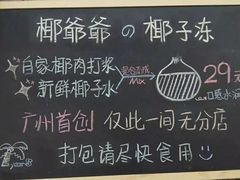 椰爷爷の椰子冻
自家椰肉打浆
新鲜椰子水
混合而成
Mix
29元
口感水润
广州首创 仅此一间无分店
打包请尽快食用